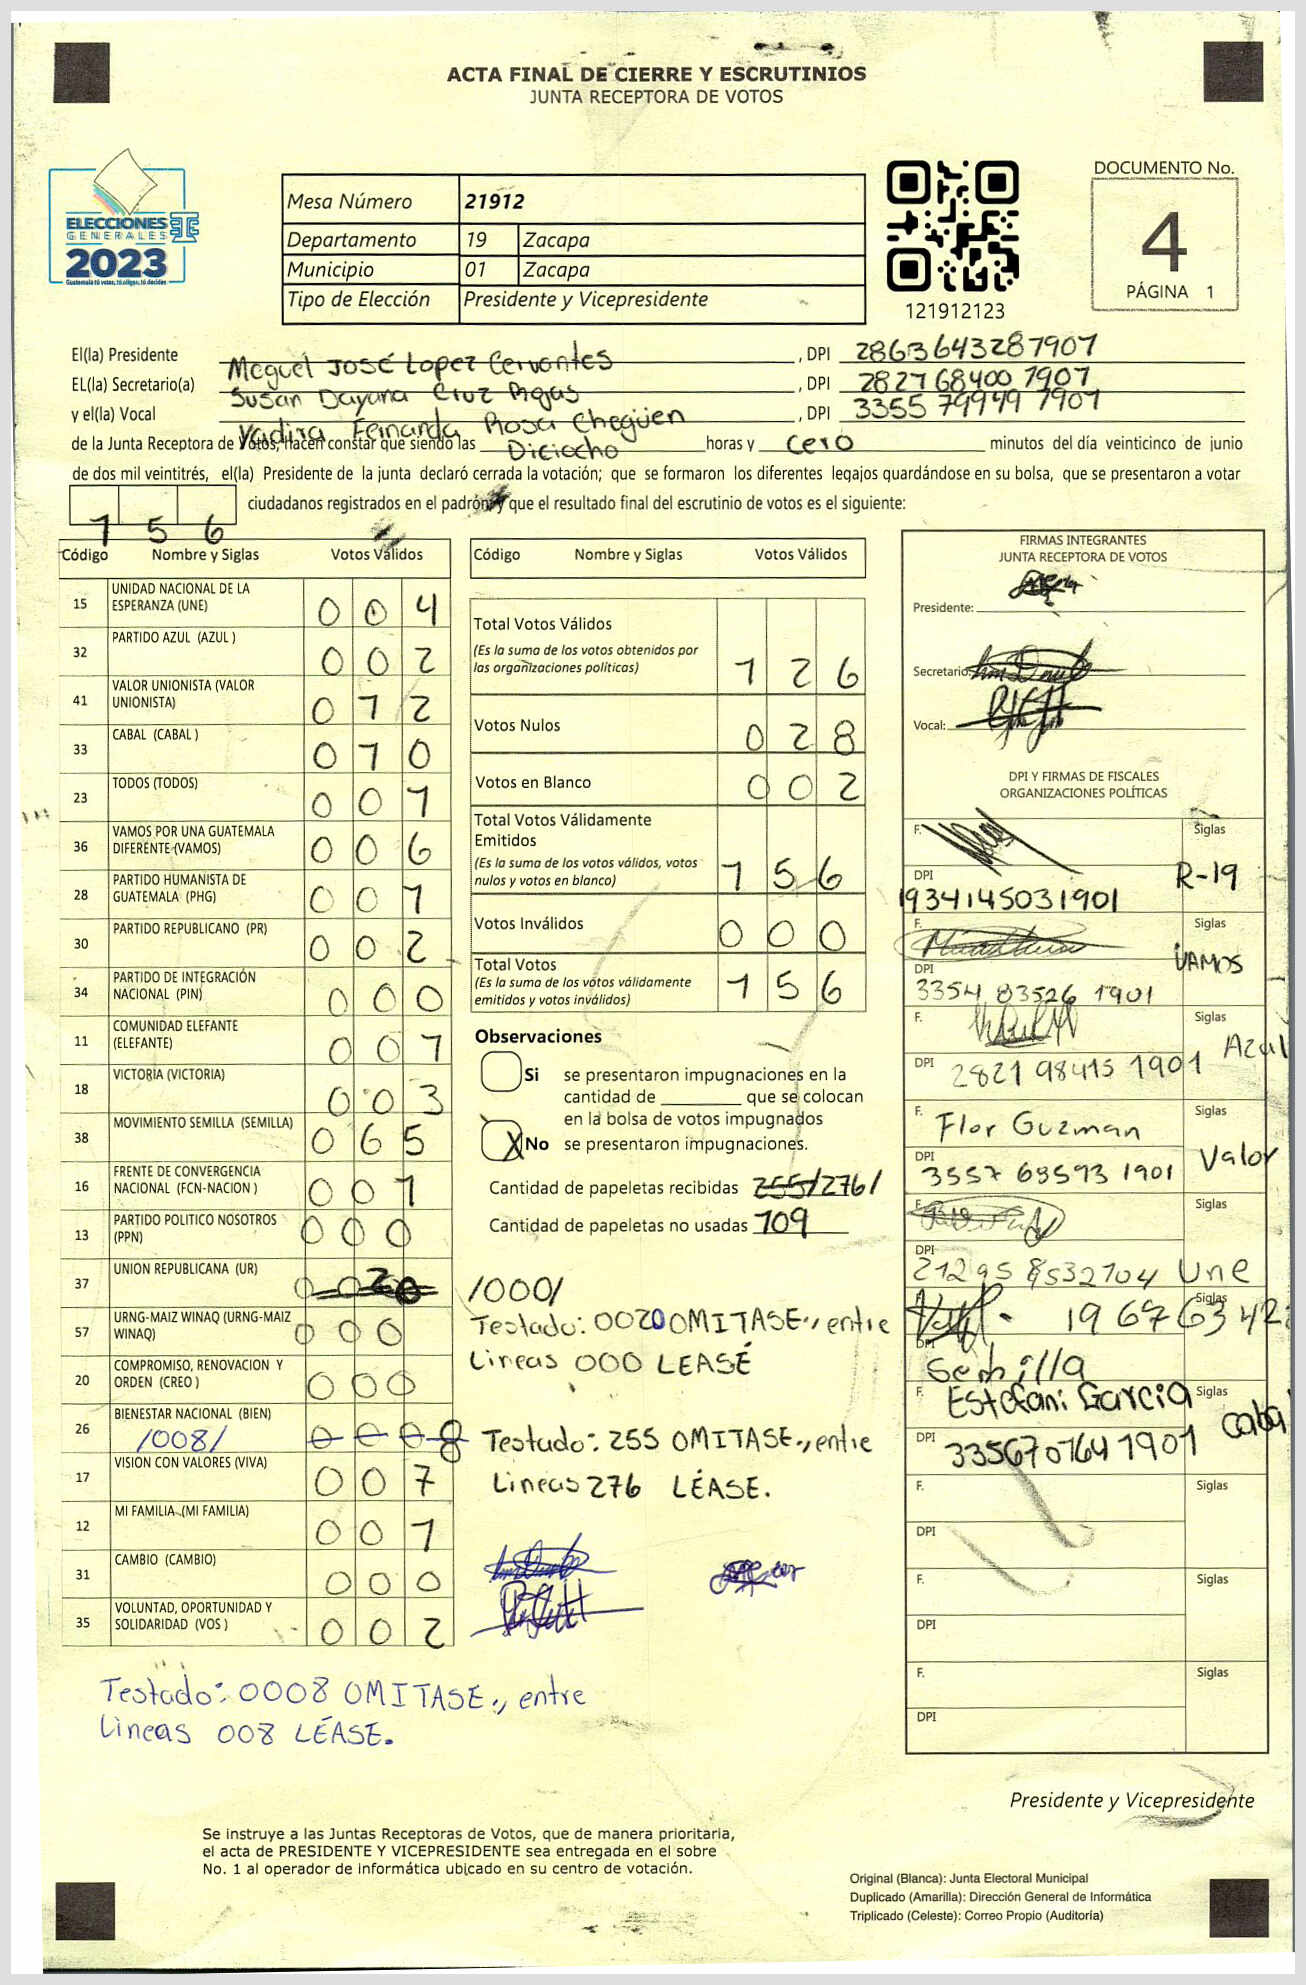 ACTA FINAL DE CIERRE Y ESCRUTINIOS
JUNTA RECEPTORA DE VOTOS
ELECCIONES
GENERALES
2023
Guatemala tú votas, tú eliges, tú decides
TSE
Mesa Número 21912
Departamento 19 Zacapa
Municipio 01 Zacapa
Tipo de Elección Presidente y Vicepresidente
121912123
DOCUMENTO No.
4
PÁGINA 1
El(la) Presidente Meguel José Lopez Cervantes , DPI 2863643287907
EL(la) Secretario(a) Susan Dayana Cruz Rojas , DPI 2827684007907
y el(la) Vocal Yadira Fernanda Rosa Chegüen , DPI 3355799497901
de la Junta Receptora de Votos, hacen constar que siendo las Diciocho horas y cero minutos del día veinticinco de junio
de dos mil veintitrés, el(la) Presidente de la junta declaró cerrada la votación; que se formaron los diferentes legajos guardándose en su bolsa, que se presentaron a votar
156 ciudadanos registrados en el padrón y que el resultado final del escrutinio de votos es el siguiente:
Código Nombre y Siglas Votos Válidos
15 UNIDAD NACIONAL DE LA ESPERANZA (UNE) 004
32 PARTIDO AZUL (AZUL ) 002
41 VALOR UNIONISTA (VALOR UNIONISTA) 012
33 CABAL (CABAL ) 010
23 TODOS (TODOS) 001
36 VAMOS POR UNA GUATEMALA DIFERENTE (VAMOS) 006
28 PARTIDO HUMANISTA DE GUATEMALA (PHG) 001
30 PARTIDO REPUBLICANO (PR) 002
34 PARTIDO DE INTEGRACIÓN NACIONAL (PIN) 000
11 COMUNIDAD ELEFANTE (ELEFANTE) 001
18 VICTORIA (VICTORIA) 003
38 MOVIMIENTO SEMILLA (SEMILLA) 065
16 FRENTE DE CONVERGENCIA NACIONAL (FCN-NACION ) 001
13 PARTIDO POLITICO NOSOTROS (PPN) 000
37 UNION REPUBLICANA (UR) 0020 /000/
57 URNG-MAIZ WINAQ (URNG-MAIZ WINAQ) 000
20 COMPROMISO, RENOVACION Y ORDEN (CREO ) 000
26 BIENESTAR NACIONAL (BIEN) /008/ 0008
17 VISION CON VALORES (VIVA) 007
12 MI FAMILIA (MI FAMILIA) 001
31 CAMBIO (CAMBIO) 000
35 VOLUNTAD, OPORTUNIDAD Y SOLIDARIDAD (VOS ) 002
Testado: 0008 OMITASE., entre
Lineas 008 LÉASE.
Código Nombre y Siglas Votos Válidos
Total Votos Válidos
(Es la suma de los votos obtenidos por las organizaciones políticas) 126
Votos Nulos 028
Votos en Blanco 002
Total Votos Válidamente Emitidos
(Es la suma de los votos válidos, votos nulos y votos en blanco) 156
Votos Inválidos 000
Total Votos
(Es la suma de los votos válidamente emitidos y votos inválidos) 156
Observaciones
Si se presentaron impugnaciones en la
cantidad de ________ que se colocan
en la bolsa de votos impugnados
X No se presentaron impugnaciones.
Cantidad de papeletas recibidas 255/276/
Cantidad de papeletas no usadas 109
Testado: 0020 OMITASE., entre
Lineas 000 LEASÉ
Testado: 255 OMITASE., entre
Lineas 276 LÉASE.
FIRMAS INTEGRANTES
JUNTA RECEPTORA DE VOTOS
Presidente:
Secretario:
Vocal:
DPI Y FIRMAS DE FISCALES
ORGANIZACIONES POLÍTICAS
F. Siglas
DPI R-19
1934145031901
F. Siglas
DPI VAMOS
3354 83526 1901
F. Siglas
DPI 2821 98415 1901 Azul
F. Flor Guzman Siglas
DPI Valor
3557 63593 1901
F. Siglas
DPI
212958532104 Une
Siglas
DPI
Semilla
F. Estefani Garcia Siglas
DPI 3356707641901
F. Siglas
DPI
F. Siglas
DPI
F. Siglas
DPI
Presidente y Vicepresidente
Se instruye a las Juntas Receptoras de Votos, que de manera prioritaria,
el acta de PRESIDENTE Y VICEPRESIDENTE sea entregada en el sobre
No. 1 al operador de informática ubicado en su centro de votación.
Original (Blanca): Junta Electoral Municipal
Duplicado (Amarilla): Dirección General de Informática
Triplicado (Celeste): Correo Propio (Auditoría)